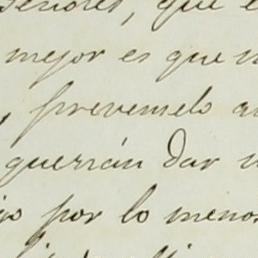 señores, que e
mejor es que n
, prevemelo a
querrán dar n
go por lo menos